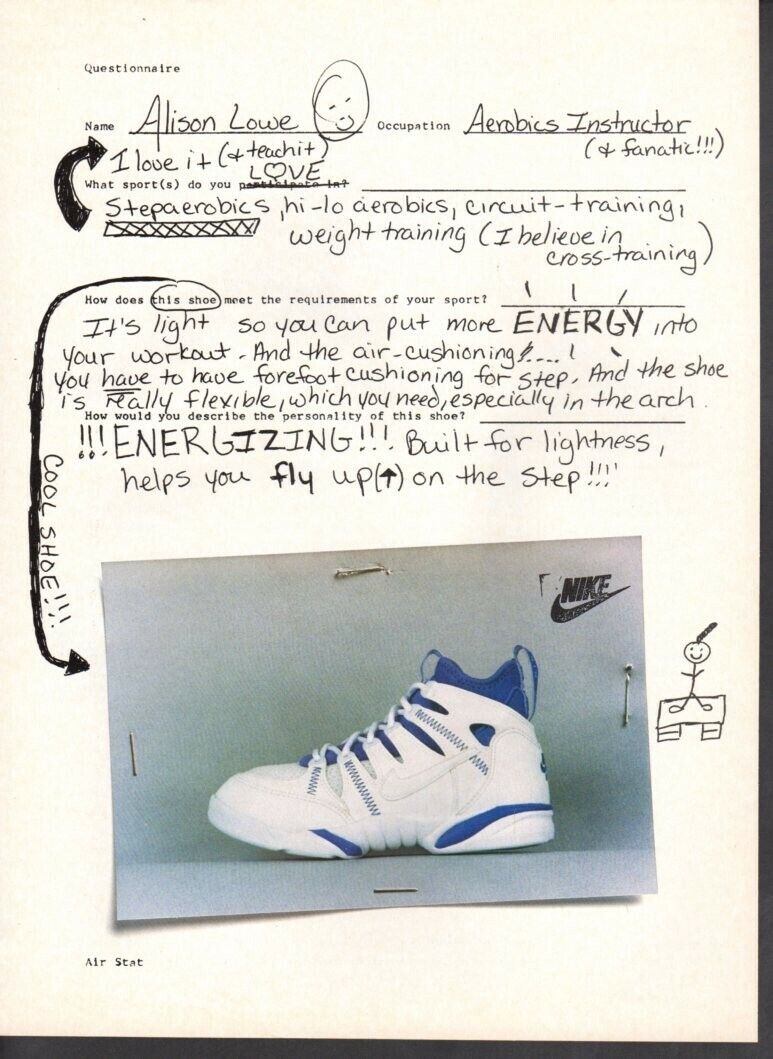 Questionnaire
Name Alison Lowe Occupation Aerobics Instructor
(& fanatic!!!)
I love it (& teach it)
LOVE
What sport(s) do you participate in?
Stepaerobics, hi-lo aerobics, circuit-training,
weight training (I believe in
cross-training)
How does this shoe meet the requirements of your sport?
It's light so you can put more ENERGY into
your workout. And the air-cushioning!....!
you have to have forefoot cushioning for step. And the shoe
is really flexible, which you need, especially in the arch.
How would you describe the personality of this shoe?
!!!ENERGIZING!!! Built for lightness,
helps you fly up(↑) on the step!!!
COOL SHOE!!!
NIKE
Air Stat